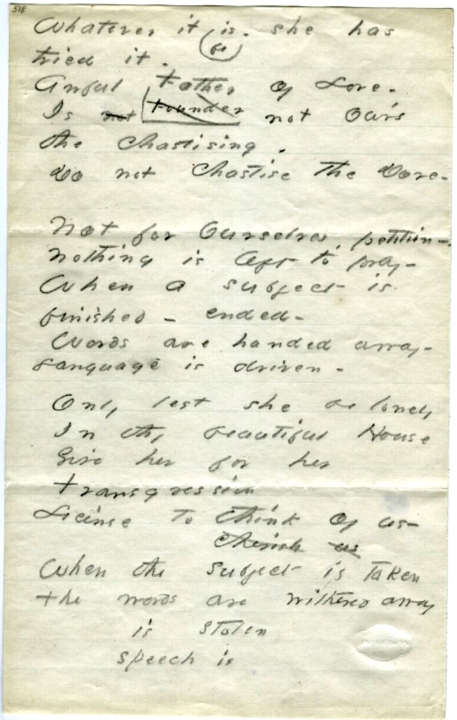 518
Whatever it is. she has
(be)
tried it.
Awful Father of Love-
Is not Founder not Ours
the Chastising.
Do not Chastise the Dove-
Not for Ourselves, petition-
Nothing is left to pray-
When a subject is
finished - ended-
Words are handed away-
Language is driven-
Only lest she be lonely
In thy beautiful House
Give her for her
Transgression
License to think of us-
Cherish us
When the subject is Taken
the words are withered away
is stolen
speech is